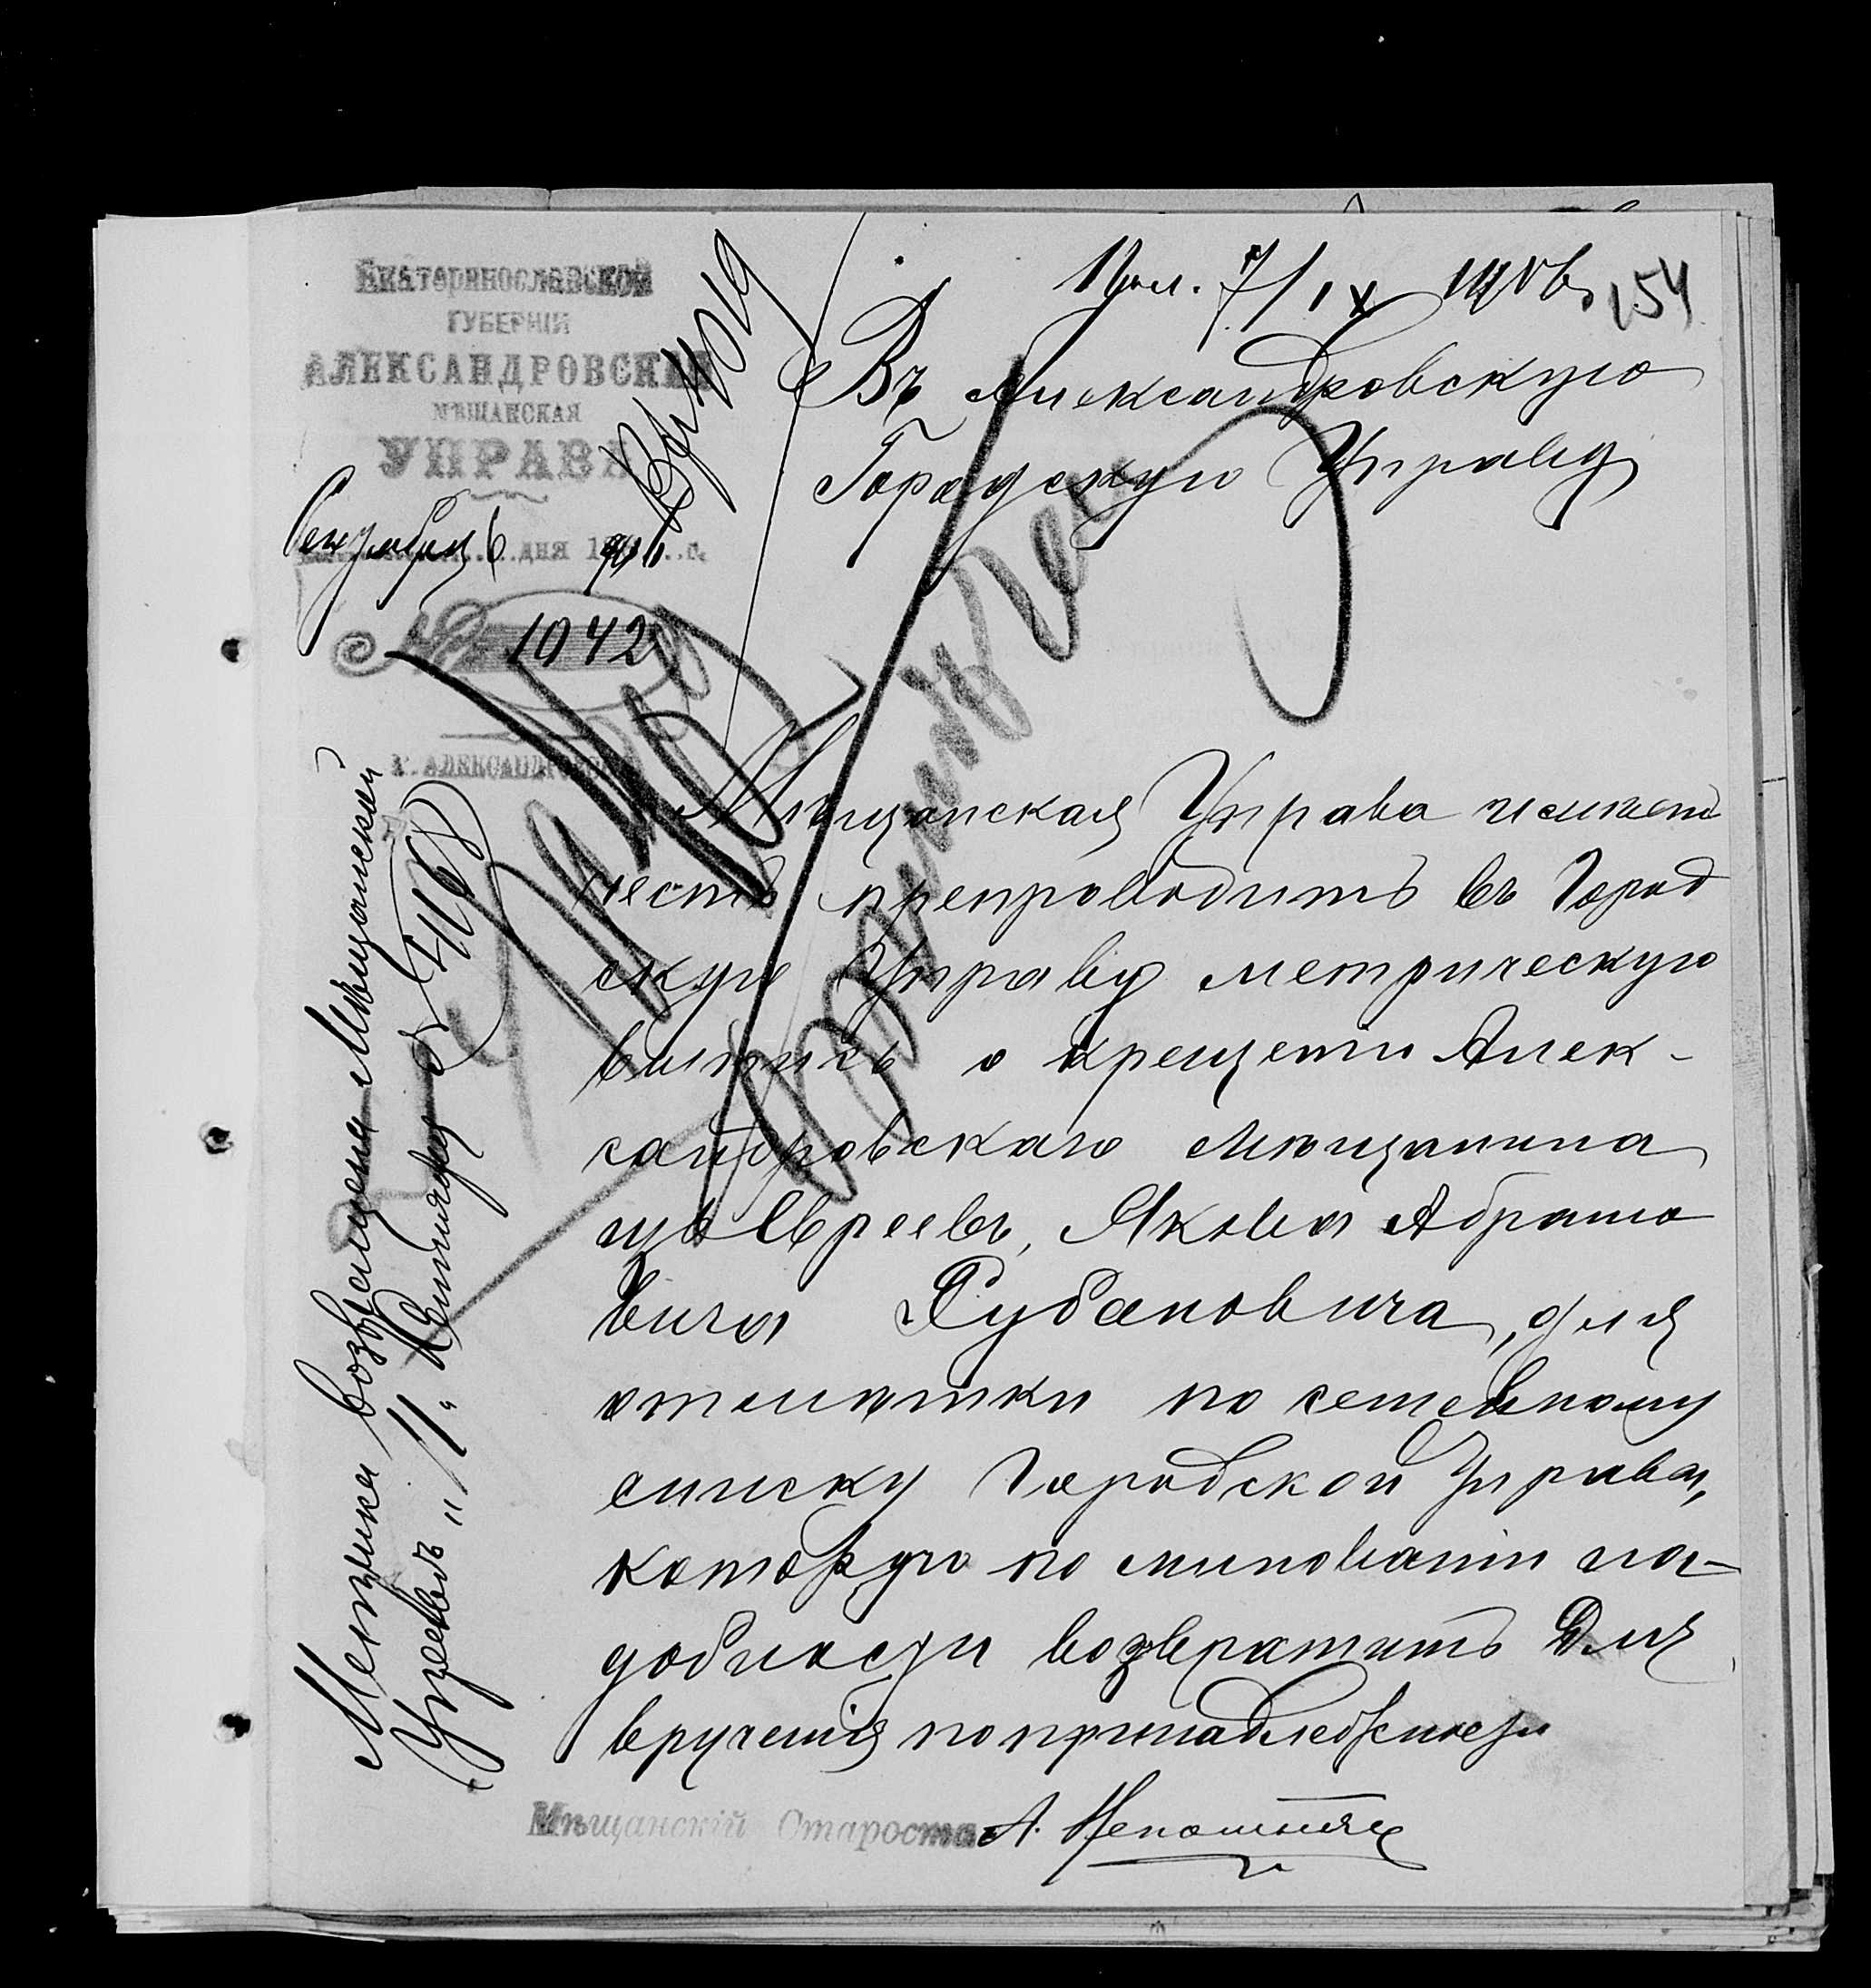 Екатеринославской
ГУБЕРНІИ
АЛЕКСАНДРОВСКАЯ
МѢЩАНСКАЯ
УПРАВА
Сентября 6 дня 191 г.
№ 1042
г. Александровскъ
Пол. 7/IX
154
Въ Александровскую
Городскую Управу
Мѣщанская Управа имѣетъ
честь препроводить въ Город
скую Управу метрическую
выпись о крещеніи Алек-
сандровскаго мѣщанина
изъ Евреевъ, Якова Абрамо
вича Рубановича, для
отмѣтки по семейному
списку Городской Управы,
которую по минованіи на-
добности возвратить для
врученія по принадлежности
Мѣщанскій Староста А.
Метрика возвращена Мѣщанской
Управѣ 11 Сентября